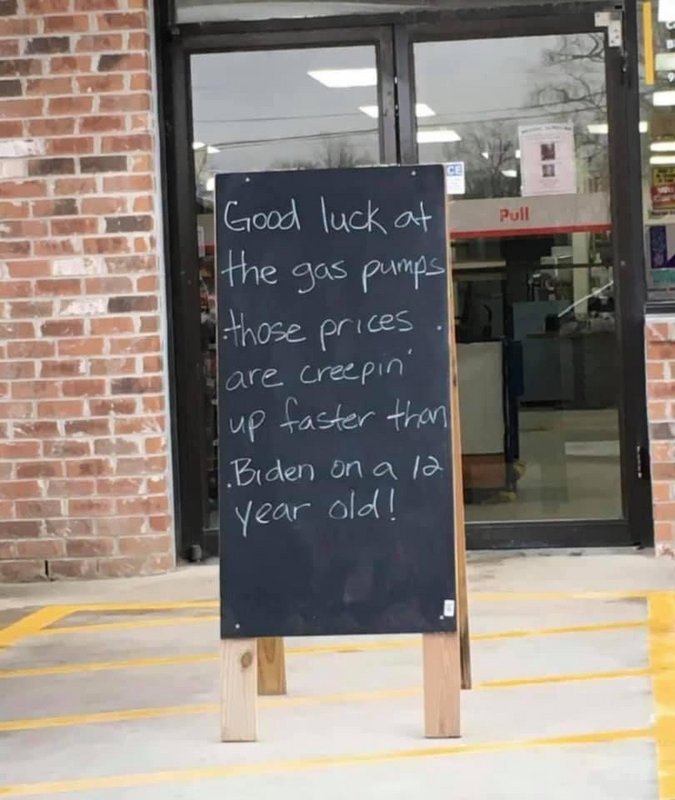 Good luck at
the gas pumps
those prices
are creepin'
up faster than
Biden on a 12
year old!
Pull